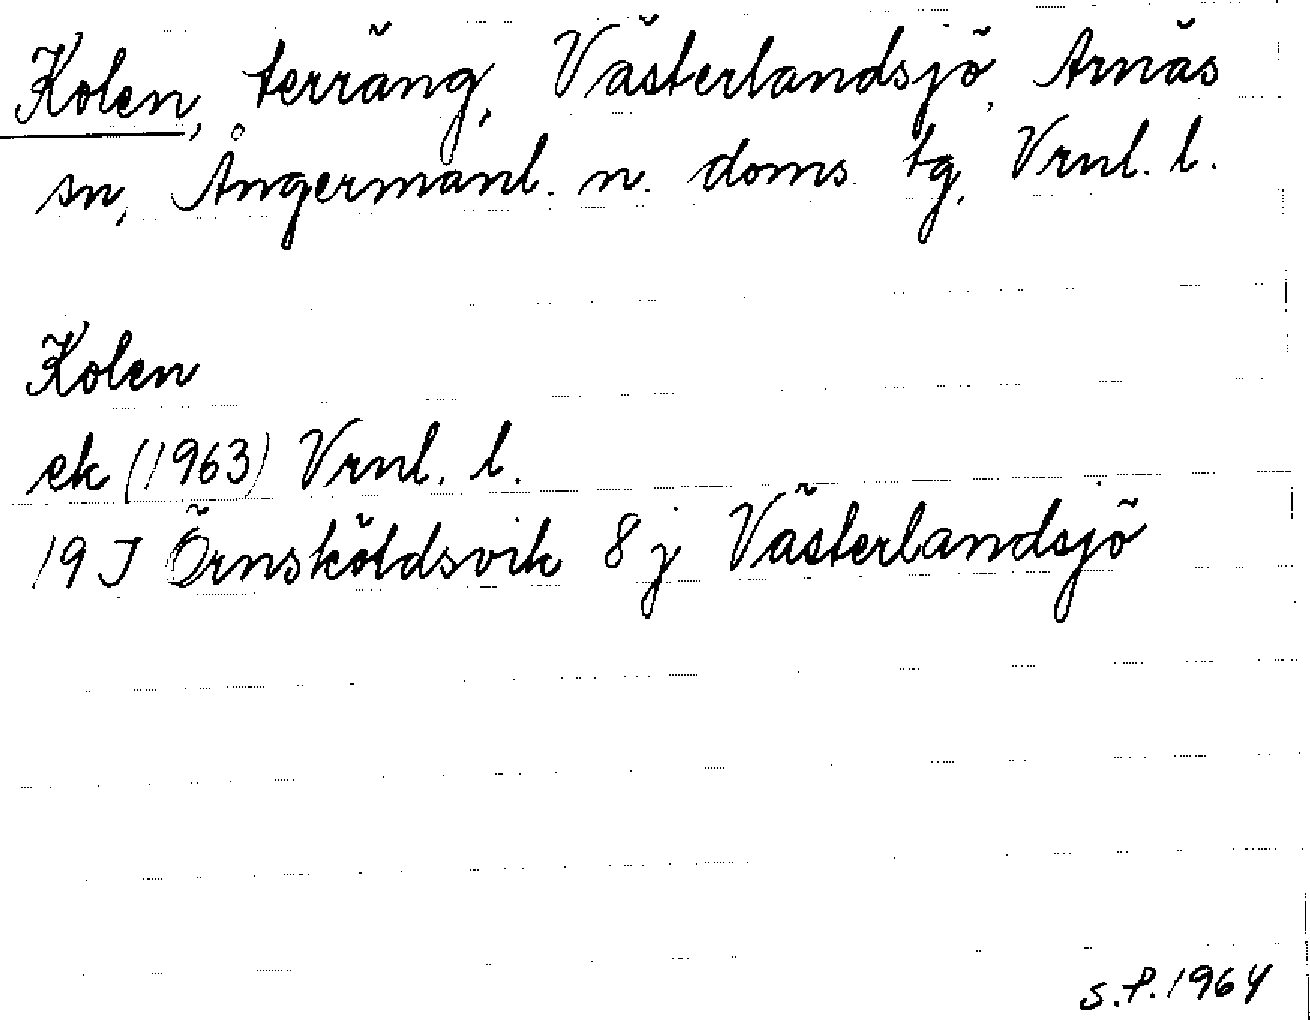 Kolen, terräng, Västerlandsjö, Arnäs
sn, Ångermanl. n. doms. tg, Vrnl. l.
Kolen
ek (1963) Vrnl. l.
19 J Örnsköldsvik 8 j Västerlandsjö
S.P. 1964